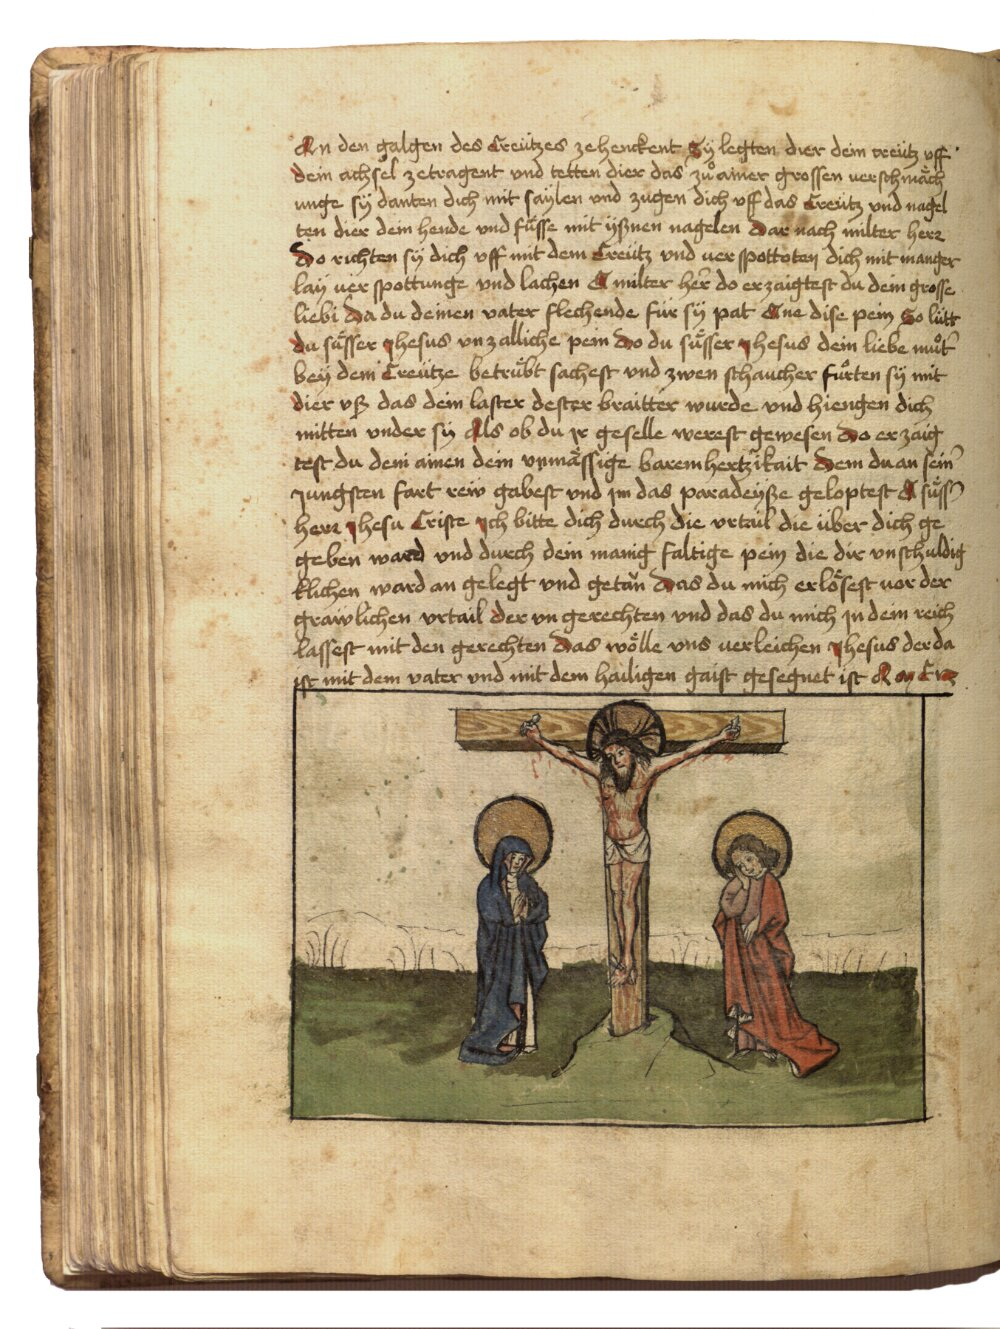 An den galgen des Creützes ze henckent Sÿ legten dier dem creütz vff
dem achsel ze tragent vnd tetten dier das zů ainer grossen verschmäch
unge sÿ danten dich mit saÿlen vnd zugen dich vff das Creütz vnd nagel
ten dier dem hende vnd füsse mit ÿßnen nagelen Dar nach milter herr
Do richten sÿ dich vff mit dem Creütz vnd verspottoten dich mit manger
laÿ verspottunge vnd lachen O milter her do erzaigtest du dein grosse
liebi Da du deinen vater flechende für sÿ pat One dise pein So lütt
du süsser Jhesus vnzalliche pein Do du süsser Jhesus dein liebe můt
beÿ dem Creütze betrübt sachest vnd zwen schaucher fůrten sÿ mit
dier vß das dein laster dester braitter wurde vnd hiengen dich
mitten vnder sÿ Als ob du jr geselle werest gewesen Do erzaig
test du dem ainen dein vnmässige baremhertzikait Dem du an sein
jungsten fart rew gabest vnd jm das paradeÿße geloptest O süss
herr Jhesu Criste Ich bitte dich durch die vrtail die über dich ge
geben ward vnd durch dein manig faltige pein die dir vnschuldig
klichen ward an gelegt vnd getan Das du mich erlösest vor der
grawlichen vrtail der vngerechten vnd das du mich jn dein reich
lassest mit den gerechten Das wölle vns verleichen Jhesus der da
ist mit dem vater vnd mit dem hailigen gaist gesegnet ist